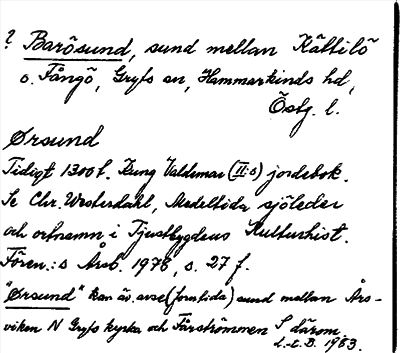 ? Barösund, sund mellan Kättilö
o. Fångö, Gryts sn, Hammarkinds hd,
Östg. l.
Ørsund
Tidigt 1300t. Kung Valdemar (II:s) jordebok.
Se Chr. Westerdahl, Medeltida sjöleder
och ortnamn i Tjustbygdens Kulturhist.
Fören.:s Årsb. 1978, s. 27 f.
"Ørsund" kan äv. avse (forntida) sund mellan Års-
viken N Gryts kyrka och Fårströmmen S därom.
1983.